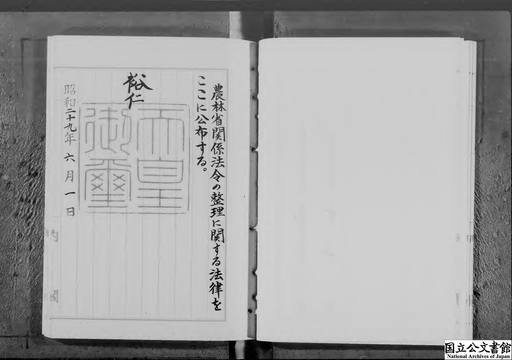 農林省関係法令の整理に関する法律を
ここに公布する。
裕仁
天皇
御璽
昭和二十九年六月一日
内閣
国立公文書館
National Archives of Japan